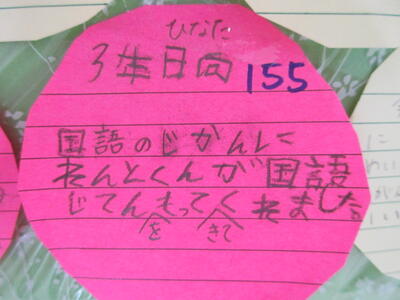 ひなた
3年日向 155
国語のじかんに
れんとくんが国語
じてんもってくれました。
を きて